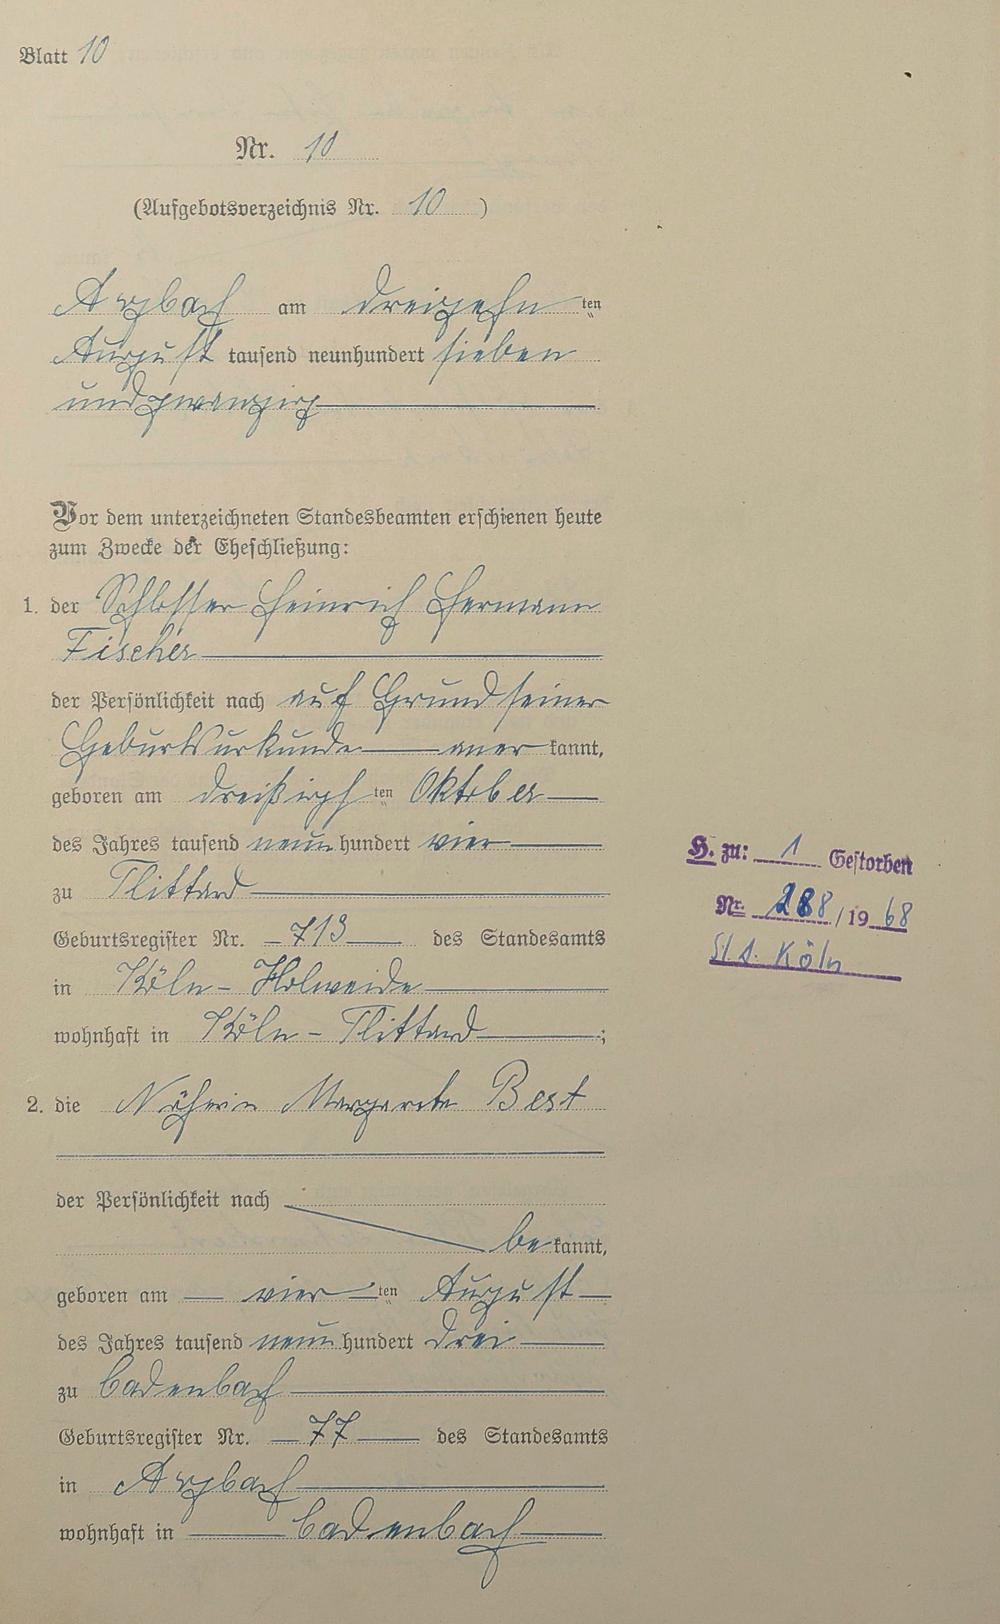 Blatt 10
Nr. 10
(Aufgebotsverzeichnis Nr. 10 )
Arzbach am dreizehn ten
August tausend neunhundert sieben
undzwanzig
Vor dem unterzeichneten Standesbeamten erschienen heute
zum Zwecke der Eheschließung:
1. der Schlosser Heinrich Hermann
Fischer
der Persönlichkeit nach auf Grund seiner
Geburtsurkunde anerkannt,
geboren am dreißigsten Oktober
des Jahres tausend neunhundert vier
zu Flittard
Geburtsregister Nr. 713 des Standesamts
in Köln-Holweide
wohnhaft in Köln-Flittard ;
2. die Näherin Margarete Best
der Persönlichkeit nach
bekannt,
geboren am vierten August
des Jahres tausend neunhundert drei
zu Cadenbach
Geburtsregister Nr. 77 des Standesamts
in Arzbach
wohnhaft in Cadenbach
H. zu: 1 Gestorben
Nr. 288/1968
St. A. Köln